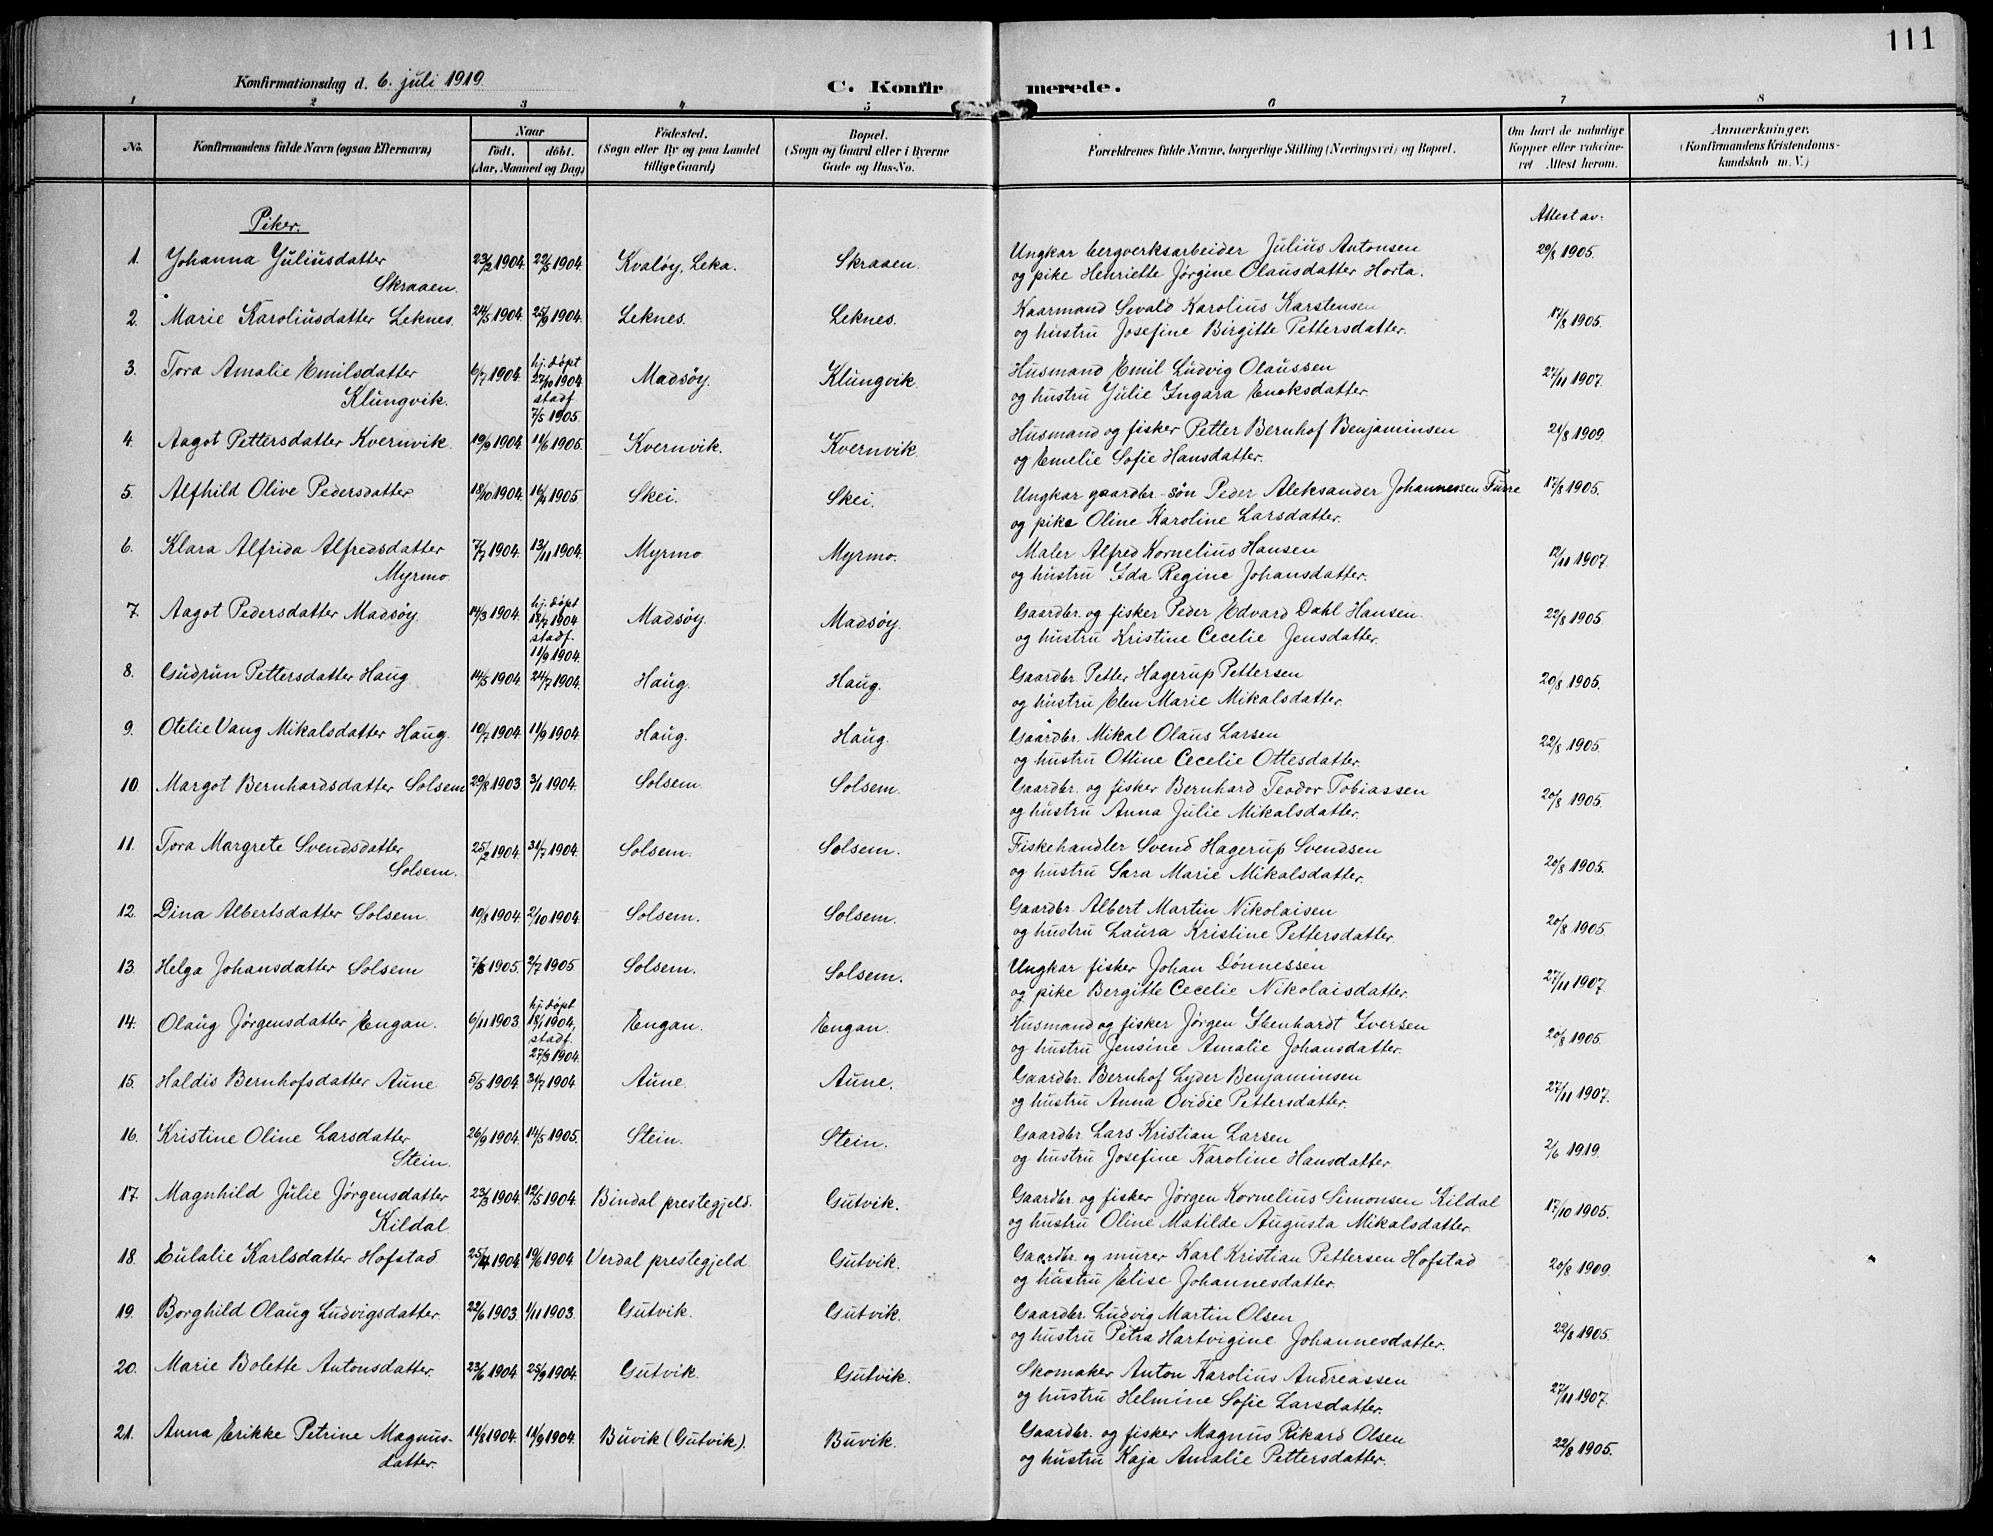 111
Konfirmationsdag d. 6. juli 1919.
C. Konfirmerede.
1 2 3 4 5 6 7 8
No. Konfirmandens fulde Navn (ogsaa Efternavn) Naar født. døbt. (Aar, Maaned og Dag) Fødested. (Sogn eller By og paa Landet tillige Gaard) Bopæl. (Sogn og Gaard eller i Byerne Gade og Hus-No. Forældrenes fulde Navne, borgerlige Stilling (Næringsvei) og Bopæl. Om havt de naturlige Kopper eller vakcineret Attest herom. Anmærkninger. (Konfirmandens Kristendomskundskab m. V.)
Piker. Attest av:
1. Johanna Juliusdatter Skraaen. 23/2 1904. 22/5 1904. Kvaløy, Leka. Skraaen. Ungkar bergverksarbeider Julius Antonsen 29/8 1905.
og pike Henriette Jørgine Olausdatter Horta.
2. Marie Karoliusdatter Leknes. 24/5 1904. 25/9 1904. Leknes. Leknes. Kaarmand Sevald Karolius Karstensen 17/8 1905.
og hustru Josefine Birgitte Pettersdatter.
3. Tora Amalie Emilsdatter Klungvik. 6/7 1904. hj. døpt 27/10 1904. stadf. 7/5 1905. Madsøy. Klungvik. Husmand Emil Ludvig Olaussen 27/11 1907.
og hustru Julie Ingara Enoksdatter.
4. Aagot Pettersdatter Kvernvik. 19/9 1904. 11/6 1905. Kvernvik. Kvernvik. Husmand og fisker Petter Bernhof Benjaminsen 21/8 1909.
og Emelie Sofie Hansdatter.
5. Alfhild Olive Pedersdatter 18/10 1904. 16/4 1905 Skei. Skei. Ungkar gaardbr.-søn Peder Aleksander Johannessen Furre 17/8 1905.
og pike Oline Karoline Larsdatter.
6. Klara Alfrida Alfredsdatter Myrmo. 7/7 1904. 13/11 1904. Myrmo Myrmo. Maler Alfred Kornelius Hansen 12/11 1907.
og hustru Ida Regine Johansdatter.
7. Aagot Pedersdatter Madsøy. 14/3 1904. hj. døpt 18/7 1904 stadf. 11/9 1904. Madsøy. Madsøy. Gaardbr. og fisker Peder Edvard Dahl Hansen 22/8 1905
og hustru Kristine Cecelie Jensdatter.
8. Gudrun Pettersdatter Haug 14/5 1904. 24/7 1904. Haug. Haug. Gaardbr. Petter Hagerup Pettersen 20/8 1905.
og hustru Elen Marie Mikalsdatter.
9. Otelie Vang Mikalsdatter Haug. 10/7 1904 11/9 1904 Haug. Haug. Gaardbr. Mikal Olaus Larsen 22/8 1905.
og hustru Ottine Cecelie Ottesdatter.
10. Margot Bernhardsdatter Solsem 29/8 1903 3/1 1904. Solsem. Solsem. Gaardbr. og fisker Bernhard Teodor Tobiassen 20/8 1905.
og hustru Anna Julie Mikalsdatter.
11. Tora Margrete Svendsdatter Solsem. 25/2 1904. 31/7 1904. Solsem. Solsem. Fiskehandler Svend Hagerup Svendsen 20/8 1905.
og hustru Sara Marie Mikalsdatter.
12. Dina Albertsdatter Solsem. 19/8 1904. 2/10 1904. Solsem. Solsem. Gaardbr. Albert Martin Nikolaisen 20/8 1905.
og hustru Laura Kristine Pettersdatter.
13. Helga Johansdatter Solsem 1905. 2/7 1905 Solsem. Solsem. Ungkar fisker Johan Dønnessen 27/11 1907.
og pike Bergitte Cecelie Nikolaisdatter.
14. Olaug Jørgensdatter Engan. 6/11 1903. hj. døpt 18/1 1904, stadf. 27/3 1904. Engan. Engan. Husmand og fisker Jørgen Ibenhardt Iversen 20/8 1905.
og hustru Jensine Amalie Johansdatter.
15. Haldis Bernhofsdatter Aune 5/5 1904 31/7 1904 Aune. Aune. Gaardbr. Bernhof Lyder Benjaminsen 27/11 1907.
og hustru Anna Ovidie Pettersdatter.
16. Kristine Oline Larsdatter Stein. 26/9 1904. 14/5 1905. Stein. Stein. Gaardbr. Lars Kristian Larsen 2/6 1919.
og hustru Josefine Karoline Hansdatter.
17. Magnhild Julie Jørgensdatter Kildal 23/3 1904. 12/5 1904. Bindal prestegjeld. Gutvik. Gaardbr. og fisker Jørgen Kornelius Simonsen Kildal 17/10 1905.
og hustru Oline Matilde Augusta Mikalsdatter.
18. Eulalie Karlsdatter Hofstad 25/4 1904 19/6 1904 Verdal prestegjeld. Gutvik. Gaardbr. og murer Karl Kristian Pettersen Hofstad 20/8 1909.
og hustru Elise Johannesdatter.
19. Borghild Olaug Ludvigsdatter 22/6 1903. 1/11 1903. Gutvik. Gutvik. Gaardbr. Ludvig Martin Olsen 22/8 1905.
og hustru Petra Hartvigine Johannesdatter.
20. Marie Bolette Antonsdatter. 23/6 1904. 25/9 1904. Gutvik. Gutvik. Skomaker Anton Karolius Andreassen 27/11 1907.
og hustru Helmine Sofie Larsdatter.
21. Anna Erikke Petrine Magnusdatter. 1904. 11/9 1904. Buvik (Gutvik). Buvik. Gaardbr. og fisker Magnus Rikard Olsen 22/8 1905.
og hustru Kaja Amalie Pettersdatter.